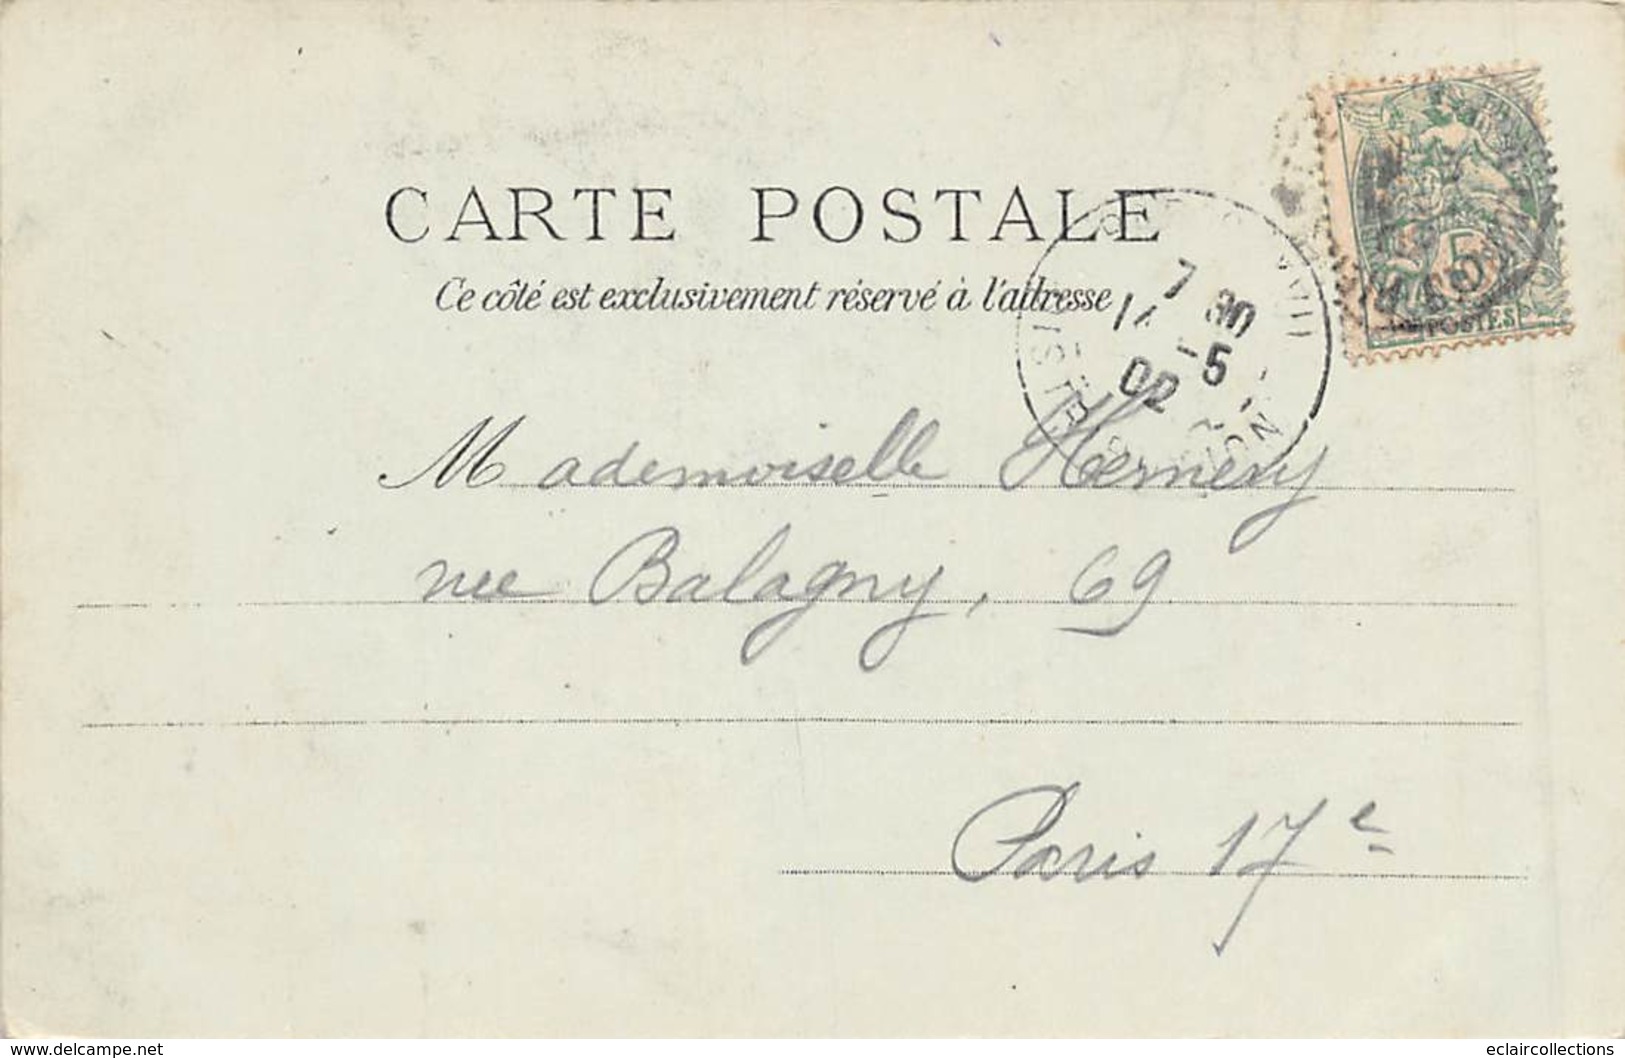 CARTE POSTALE
Ce côté est exclusivement réservé à l'adresse
7 30
5
02
5
POSTES
Mademoiselle
rue Balagny, 69
Paris 17e
www.delcampe.net
eclaircollections